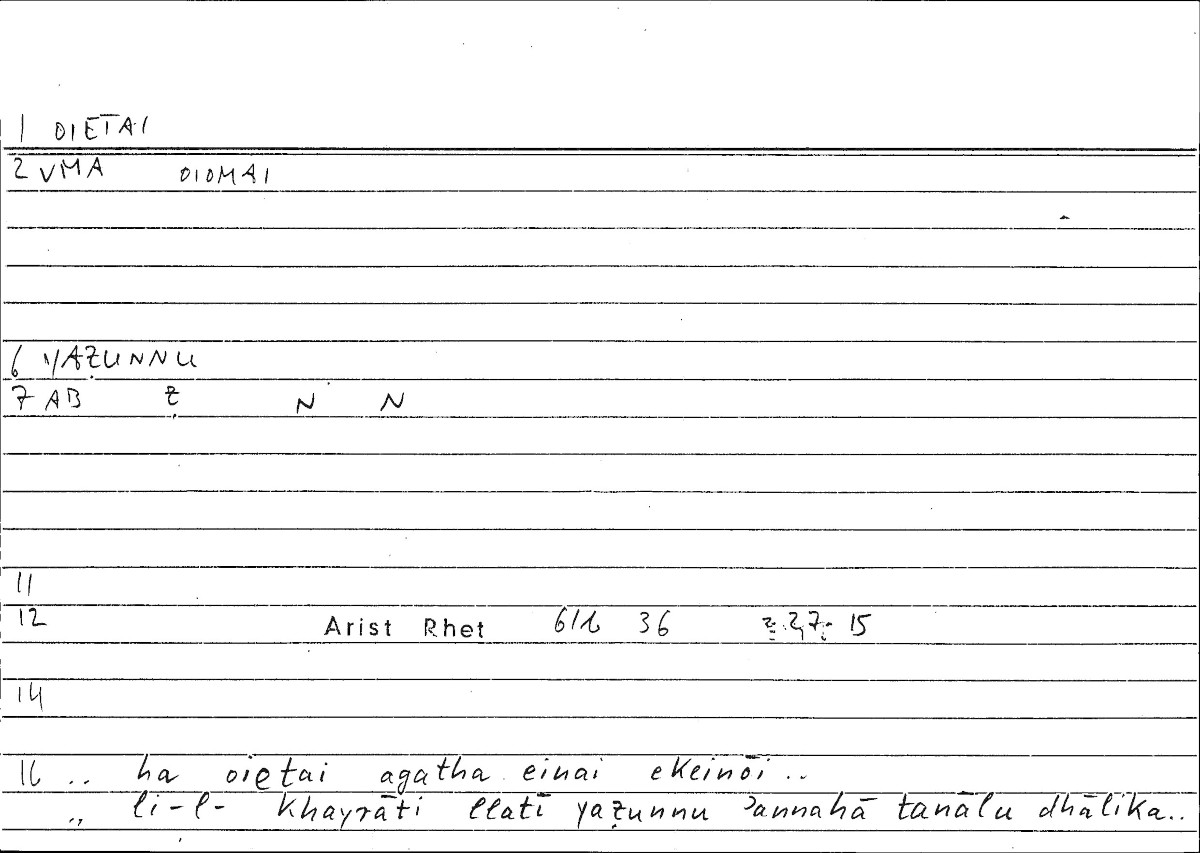 1 OIETAI
2 VMA OIOMAI
6 YAẒUNNU
7 AB Ẓ N N
11
12 Arist Rhet 61b 36 27 15
14
16 .. ha oietai agatha einai ekeinōi ..
,, li-l- khayrāti llatī yaẓunnu ʾannahā tanālu dhālika..